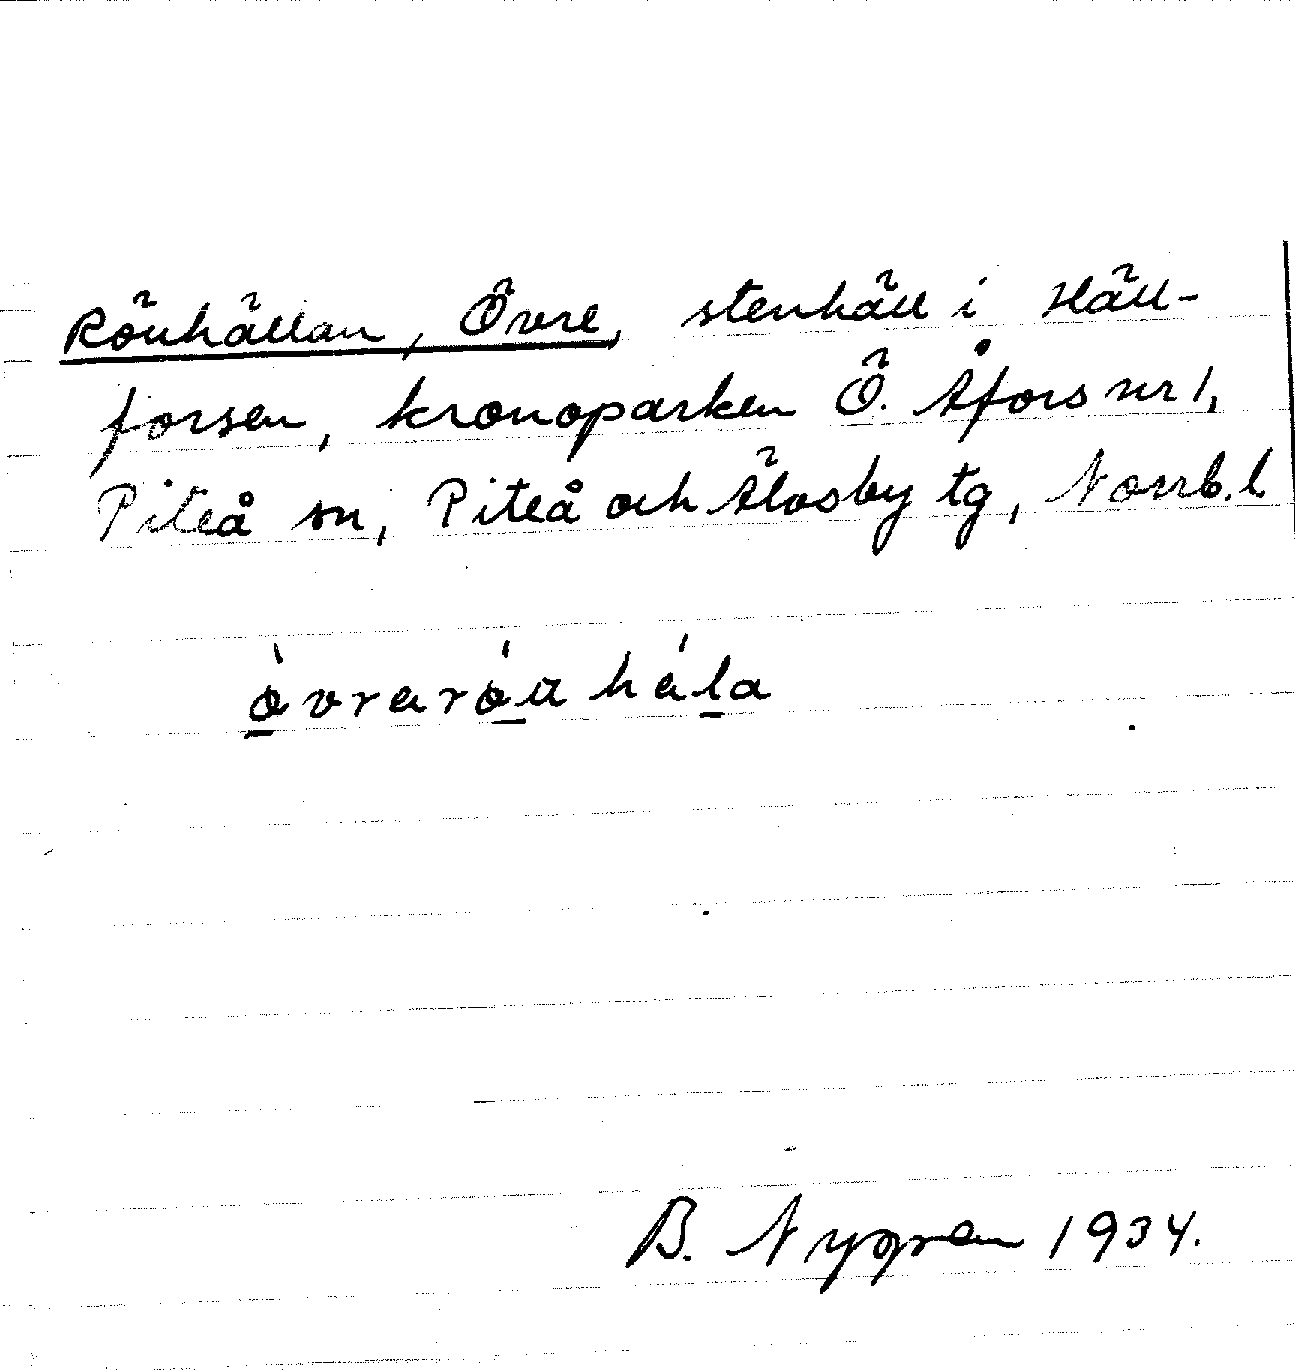 Röuhällan, Övre, stenhäll i Häll-
forsen, kronoparken Ö. Åfors nr 1,
Piteå sn, Piteå och Älvsby tg, Norrb. l
B. Nygren 1934.